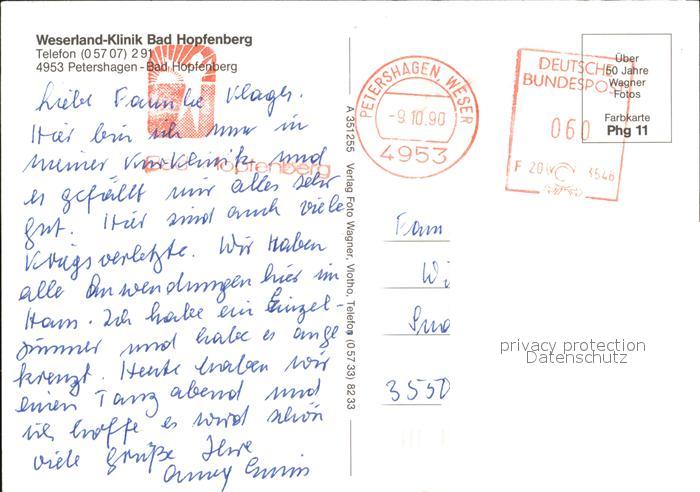 Weserland-Klinik Bad Hopfenberg
Telefon (0 57 07) 2 91
4953 Petershagen-Bad Hopfenberg
Liebe Familie Klages.
Hier bin ich nun in
meiner Kurklinik und
es gefällt mir alles sehr
gut. Hier sind auch viele
Kriegsverletzte. Wir haben
alle Anwendungen hier im
Haus. Ich habe ein Einzel-
zimmer und habe es ange
kreuzt. Heute haben wir
einen Tanz abend und
ich hoffe es wird schön
viele Grüße Ihre
Bad Hopfenberg
A 351255 Verlag Foto Wagner, Vlotho, Telefon (0 57 33) 82 33
PETERSHAGEN, WESER
-9.10.90
4953
DEUTSCHE
BUNDESPOST
060
F 20
3546
Über
50 Jahre
Wagner
Fotos
Farbkarte
Phg 11
Fam
Wi
3550
privacy protection
Datenschutz